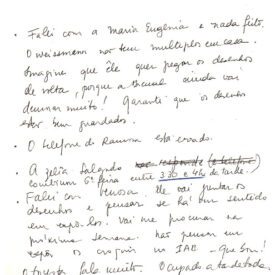 • Falei com a Maria Eugênia e nada feito.
O Weissmann não tem multiplos em casa.
Imagine que êle quer pegar os desenhos
de volta, porque a Thennal ainda vai
demorar muito! Garanti que os desenhos
estão bem guardados.
• O telefone do Ramon está errado.
• A Zelia Salgado não responde (o telefone)
6ª feira entre 3:30 e 4h da tarde.)
• Falei com de vai juntar os
desenhos e pensar se há um sentido
em expo-los. Vai me procurar na
próxima semana. Não pensam em
os no IAE - Que bom!
fala muito. Ocupado a tarde toda